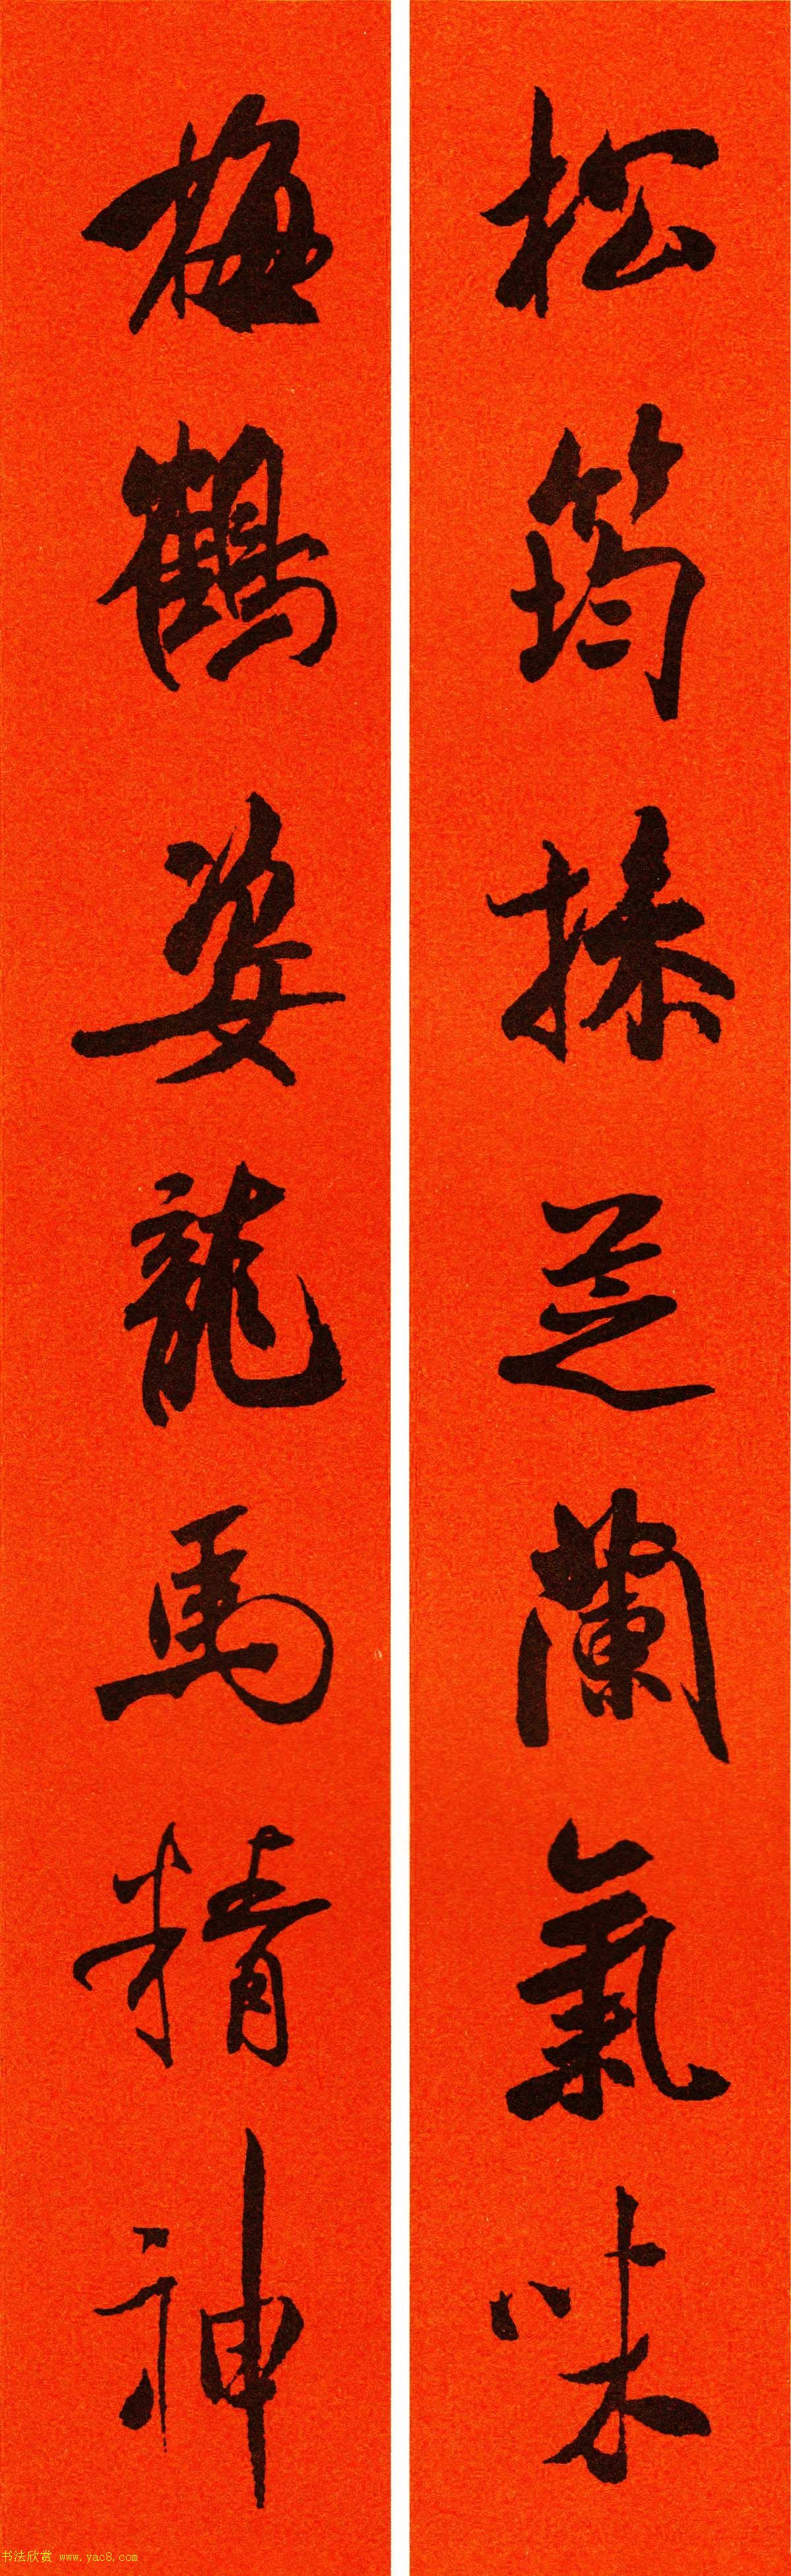 松筠操芝蘭氣味
梅鶴姿龍馬精神
书法欣赏 www.yac8.com